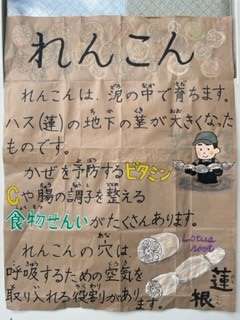 れんこん
れんこんは、泥の中で育ちます。
ハス(蓮)の地下の茎が大きくなった
ものです。
かぜを予防するビタミン
Cや腸の調子を整える
食物せんいがたくさんあります。
れんこんの穴は
呼吸するための空気を
取り入れる役割があり
ます。
Lotus root
蓮根